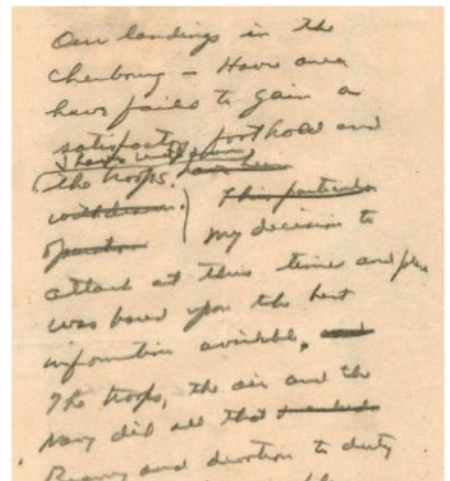 Our landings in the
Cherbourg - Havre area
have failed to gain a
satisfactory foothold and
I have withdrawn
the troops. have been
withdrawn. This particular
operation My decision to
attack at this time and place
was based upon the best
information available, and
The troops, the air and the
Navy did all that
Bravery and devotion to duty